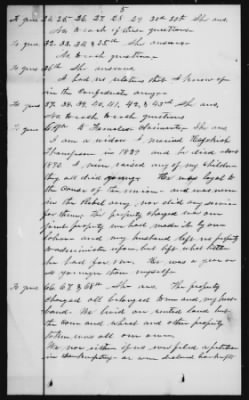 5
To ques 24, 25, 26, 27, 28, 29, 30th She ans.
No to each of these questions.
To ques 32, 33, 34 & 35th She answers
No to each question.
To ques 36th She answers
I had no relatives that I know of
in the Confederate army.
To ques 37, 38, 39, 40, 41, 42, & 43rd She ans.
No to each to each questions
To ques Female Claimants. She ans
I am a widow I married
in 18 and he died in
1870 I never raised any of my children
they all died young. He was loyal to
the cause of the union and was never
in the Rebel army nor did any service
for them. The property charged was our
joint property we had made it by our
labor and my husband left no property
to administer upon, but left what little
he had for me. He was a year or
so younger than myself.
To ques 66, 67 & 68th She ans. The property
charged all belonged to me and my hus-
band. We lived on rented land but
the corn and wheat and other property
taken was all our own.
We nor either of us ever filed a petition
in bankruptcy or was declared bankrupt